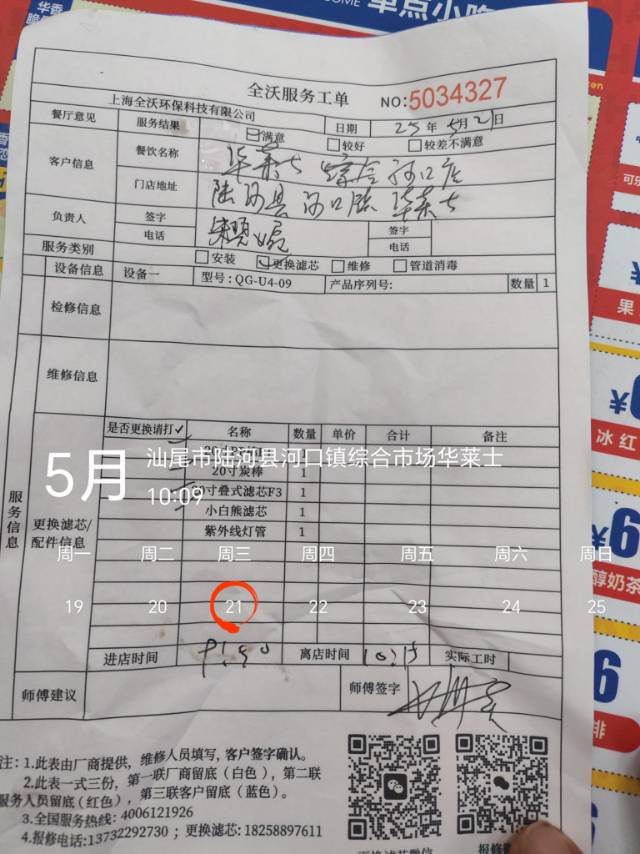 华香
脆
单点小吃
全沃服务工单
NO:5034327
上海全沃环保科技有限公司
餐厅意见 服务结果 满意 较好 较差不满意 日期 25年5月21日
客户信息 餐饮名称 华莱士 综合 河口店
门店地址 陆河县 河口镇 华莱士
负责人 签字 签字
电话 电话
服务类别 安装 更换滤芯 维修 管道消毒
设备信息 设备一 型号:QG-U4-09 产品序列号: 数量 1
检修信息
维修信息
服务信息
更换滤芯/配件信息
是否更换请打✓ 名称 数量 单价 合计 备注
20寸炭棒 1
20寸叠式滤芯F3 1
小白熊滤芯 1
紫外线灯管 1
5月 汕尾市陆河县河口镇综合市场华莱士
10:09
周一 周二 周三 周四 周五 周六 周日
19 20 21 22 23 24 25
进店时间 9:50 离店时间 10:15 实际工时
师傅建议 师傅签字
注:1.此表由厂商提供，维修人员填写，客户签字确认。
2.此表一式三份，第一联厂商留底（白色），第二联
服务人员留底（红色），第三联客户留底（蓝色）。
3.全国服务热线: 4006121926
4.报修电话:13732292730；更换滤芯: 18258897611
果
冰红
¥6
醇奶茶